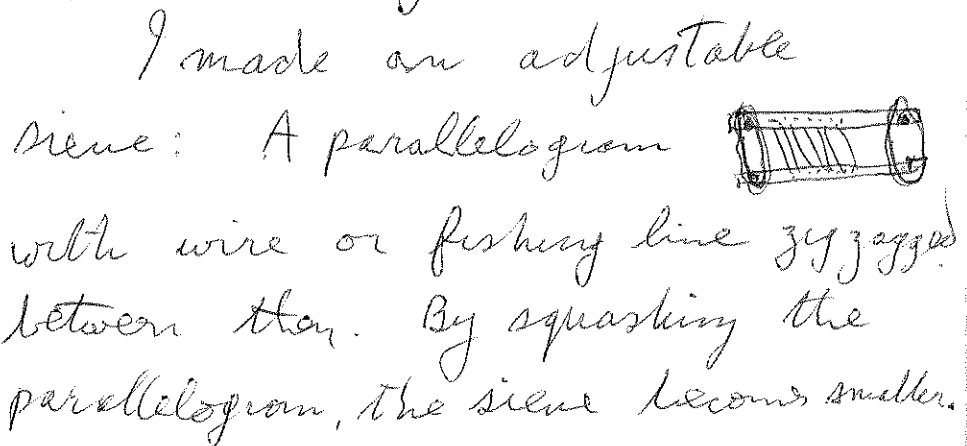 I made an adjustable
sieve: A parallelogram
with wire or fishing line zigzagged
between them. By squashing the
parallelogram, the sieve becomes smaller.